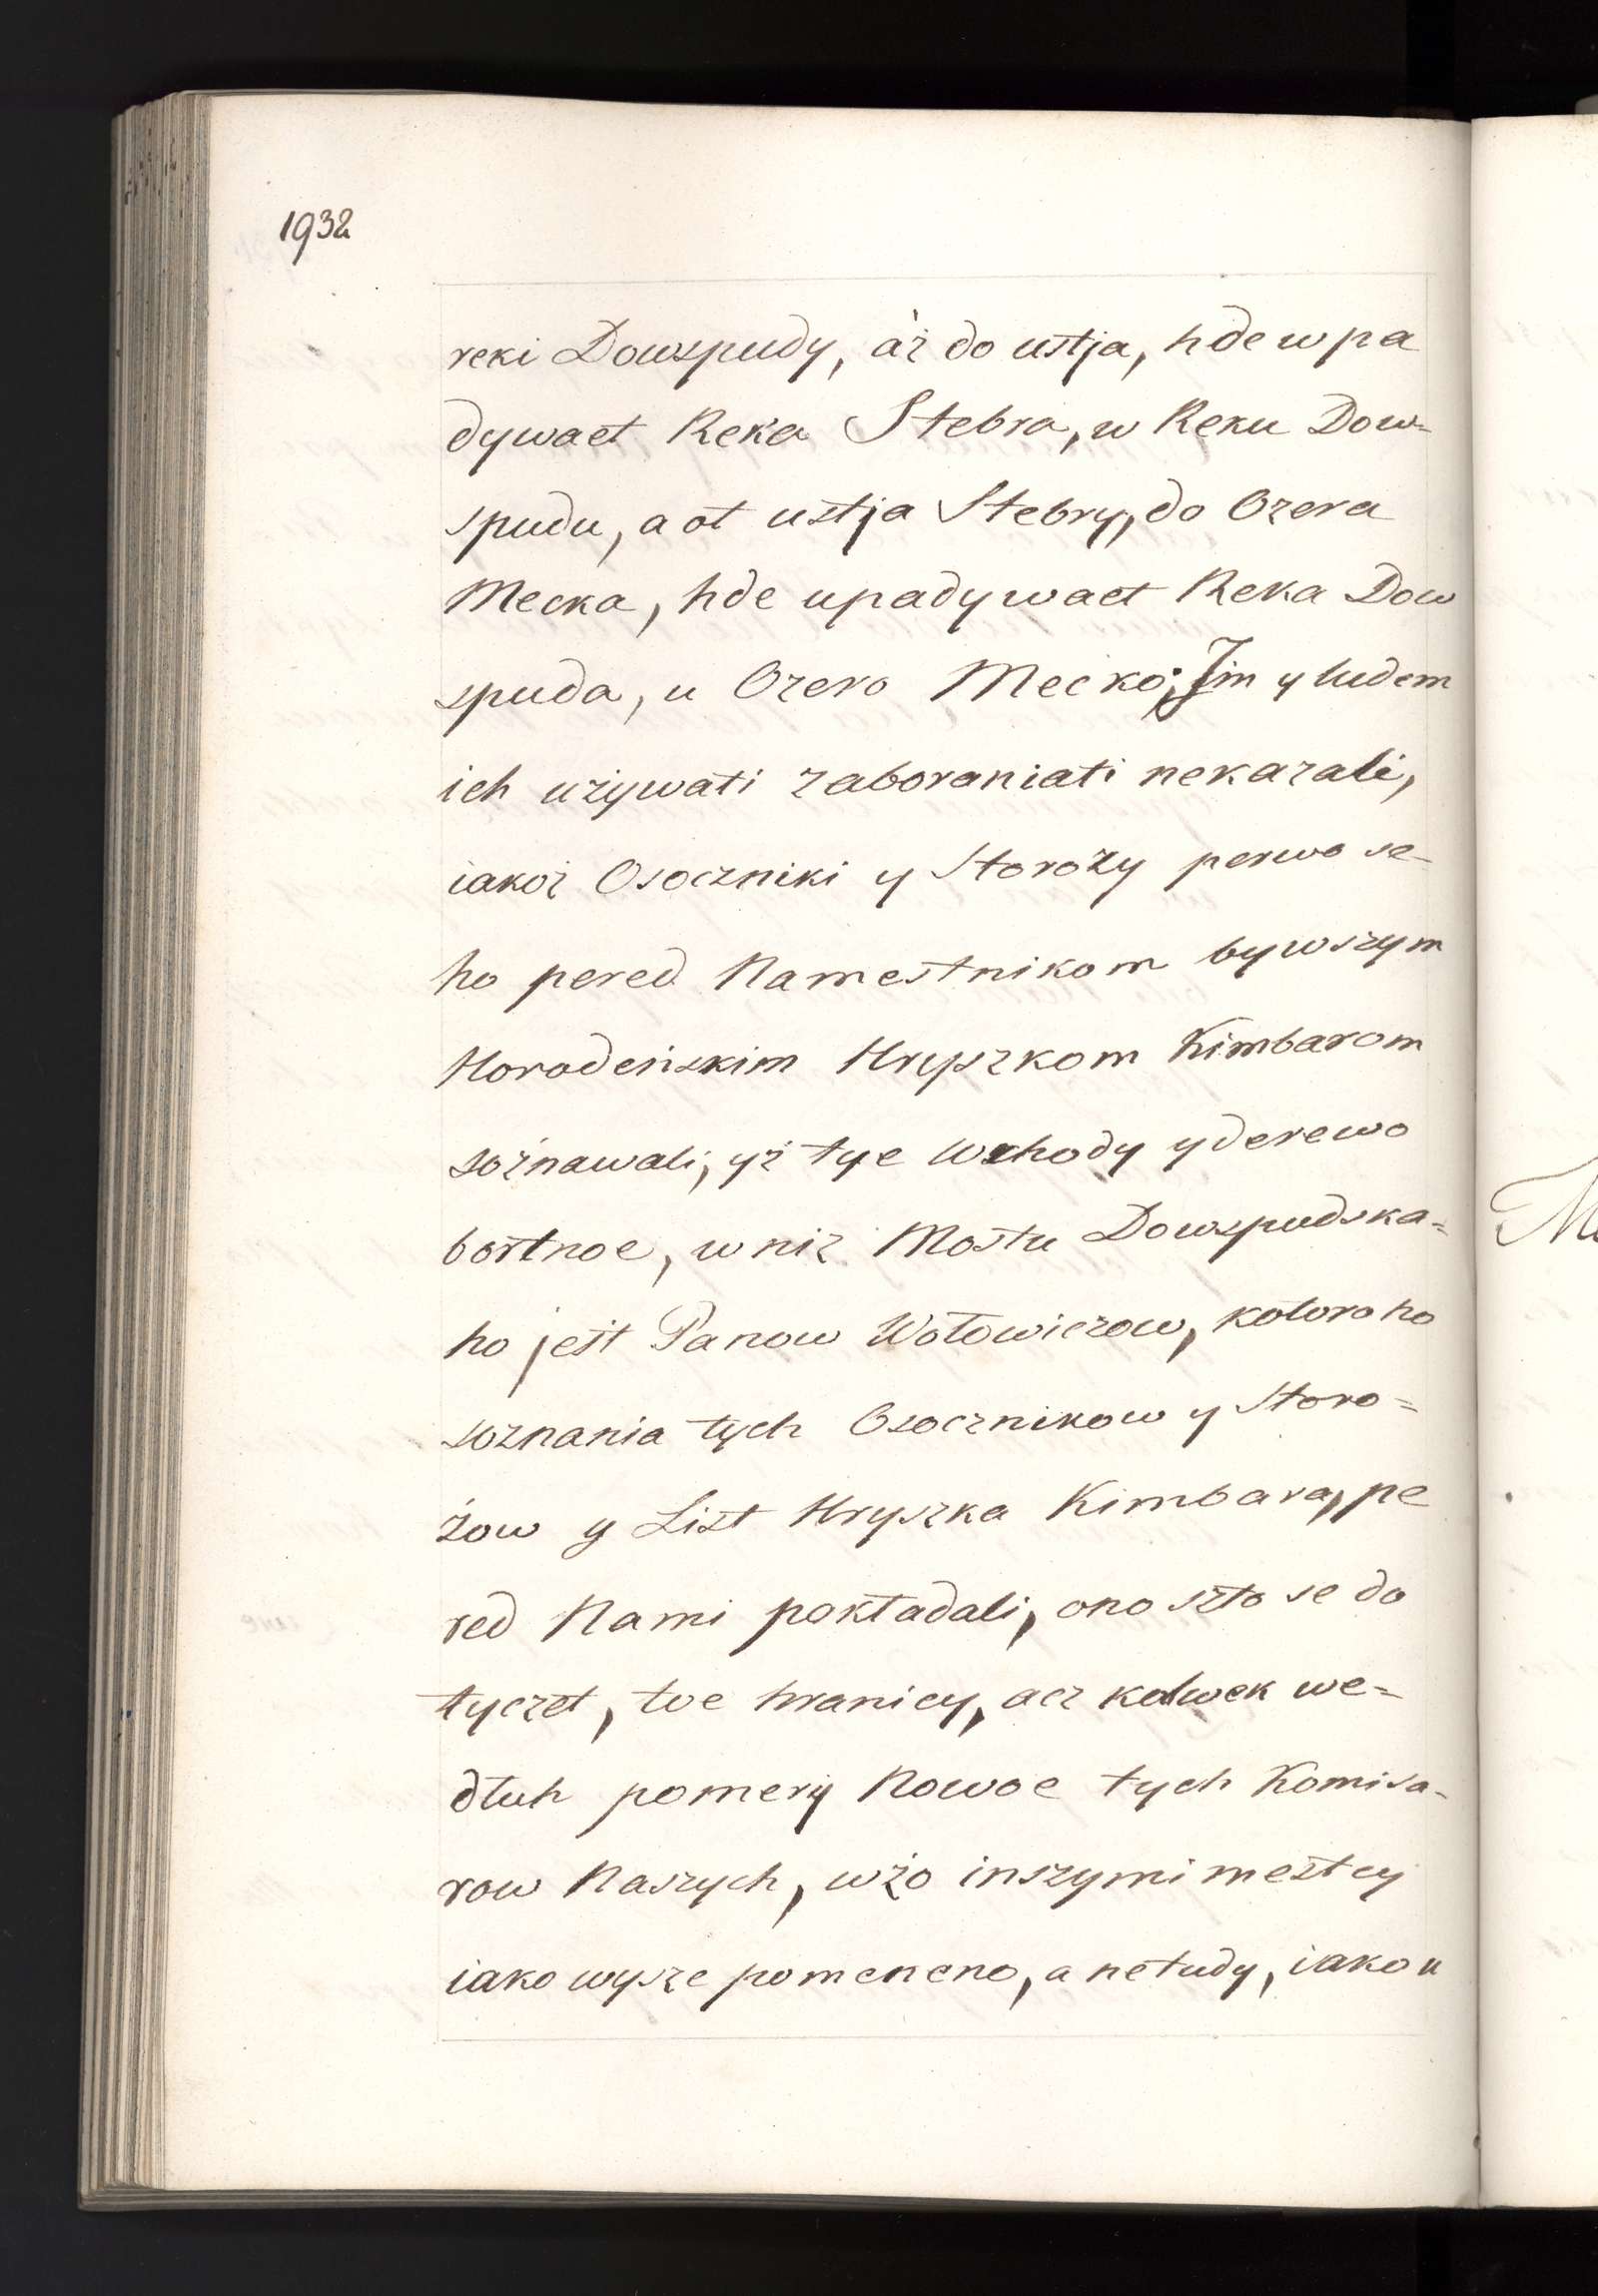 1932
reki Dowspudy, aż do ustja, hde wpa
dywaet Reka Stebra, w Reku Dow-
spudu, a ot ustja Stebry, do Ozera
Mecka, hde upadywaet Reka Dow
spuda, u Ozero Mecko; Jim y ludem
ich używati zaboraniati nekazali,
iakoż Osoczniki y Storoży perwo se-
ho pered Namestnikom bywszym
Horodeńskim Hryszkom Kimbarom
soznawali, yż tye wchody y derewo
bortnoe, w niz Mostu Dowspudska=
ho jest Panow Wołowiczow, kotoroho
soznania tych Osocznikow y Storo=
żow y List Hryszka Kimbara, pe
red Nami pokładali, ono szto se do
tyczet, toe hranicy, acz kolwek we=
dłuh pomery Nowoe tych Komisa-
row Naszych, wżo inszymi mestcy
iako wysze pomeneno, a netudy, iako u